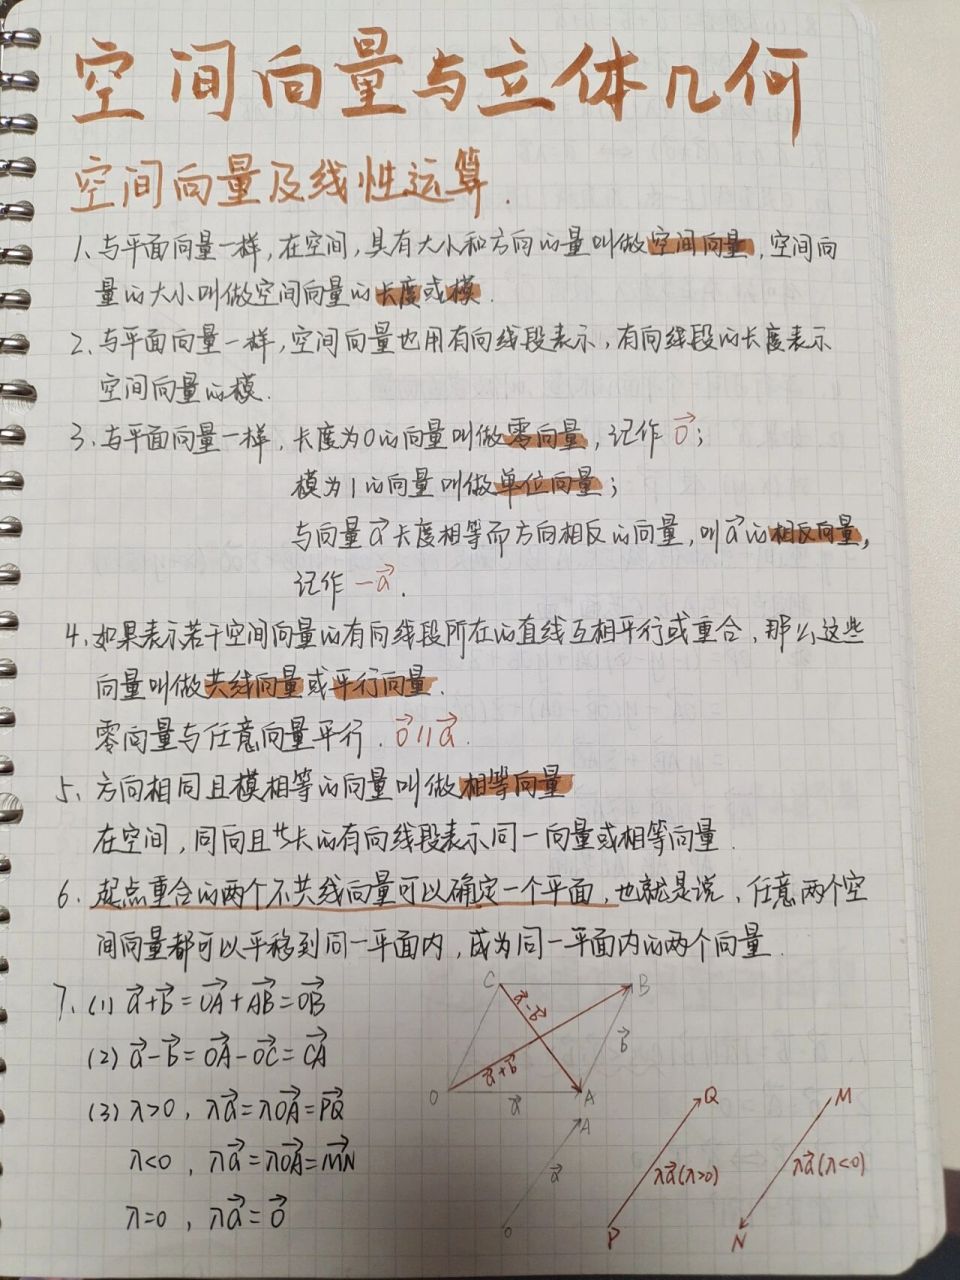 空间向量与立体几何
空间向量及线性运算.
1、与平面向量一样,在空间,具有大小和方向的量叫做空间向量,空间向
量的大小叫做空间向量的长度或模.
2、与平面向量一样,空间向量也用有向线段表示,有向线段的长度表示
空间向量的模.
3、与平面向量一样,长度为0的向量叫做零向量,记作 0⃗;
模为1的向量叫做单位向量;
与向量a⃗长度相等而方向相反的向量,叫a⃗的相反向量,
记作 −a⃗.
4、如果表示若干空间向量的有向线段所在的直线互相平行或重合,那么这些
向量叫做共线向量或平行向量.
零向量与任意向量平行. 0⃗∥a⃗.
5、方向相同且模相等的向量叫做相等向量
在空间,同向且共长的有向线段表示同一向量或相等向量.
6、起点重合的两个不共线向量可以确定一个平面,也就是说,任意两个空
间向量都可以平移到同一平面内,成为同一平面内的两个向量.
7、(1) a⃗+b⃗=OA⃗+AB⃗=OB⃗
(2) a⃗−b⃗=OA⃗−OC⃗=CA⃗
(3) λ>0, λa⃗=λOA⃗=PQ⃗
λ<0, λa⃗=λOA⃗=MN⃗
λ=0, λa⃗=0⃗
C
B
a⃗−b⃗
b⃗
a⃗+b⃗
O
a⃗
A
A
a⃗
O
Q
λa⃗(λ>0)
P
M
λa⃗(λ<0)
N